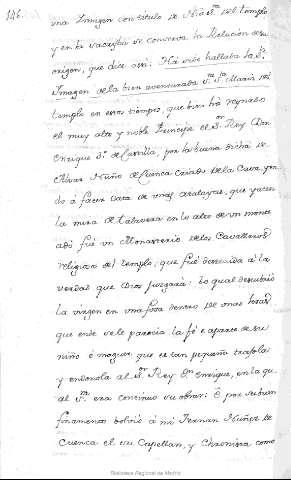 146.
una Imagen con titulo de Nrâ Srâ del templo
y en la sacristia se conserva la Relacion de su
origen, que dice asi: Há sido hallada la Sta
Imagen de la bien aventurada Srâ Sta Maria del
templo en estos tiempos, que bien há reynado
el muy alto y noble Principe el Sor Rey Don
Enrique 3º de Castilla, por la buena dicha de
Alvar Nuño de Cuenca criado de la Casa, yen
do á facer cata de unas atalayas, que yacen
la mira de talavera en lo alto de un monte
adó fué un Monasterio de los Cavalleros
religiosos del templo, que fué derraida á la
verdad que Dios juzgara: lo qual descubrió
la virgen en una fosa dentro de unas losas
que ende se le parecia la fé e aparece de su
niño ó moguer que es tan pequeño trabóla
y endonola al Sor Rey Dn Enrique, en la qu
al Srâ era continuo su obrar: é por su buen
finamento bolvió á mi Fernan Nuñez de
Cuenca el su Capellan, y Chronista como
Biblioteca Regional de Madrid